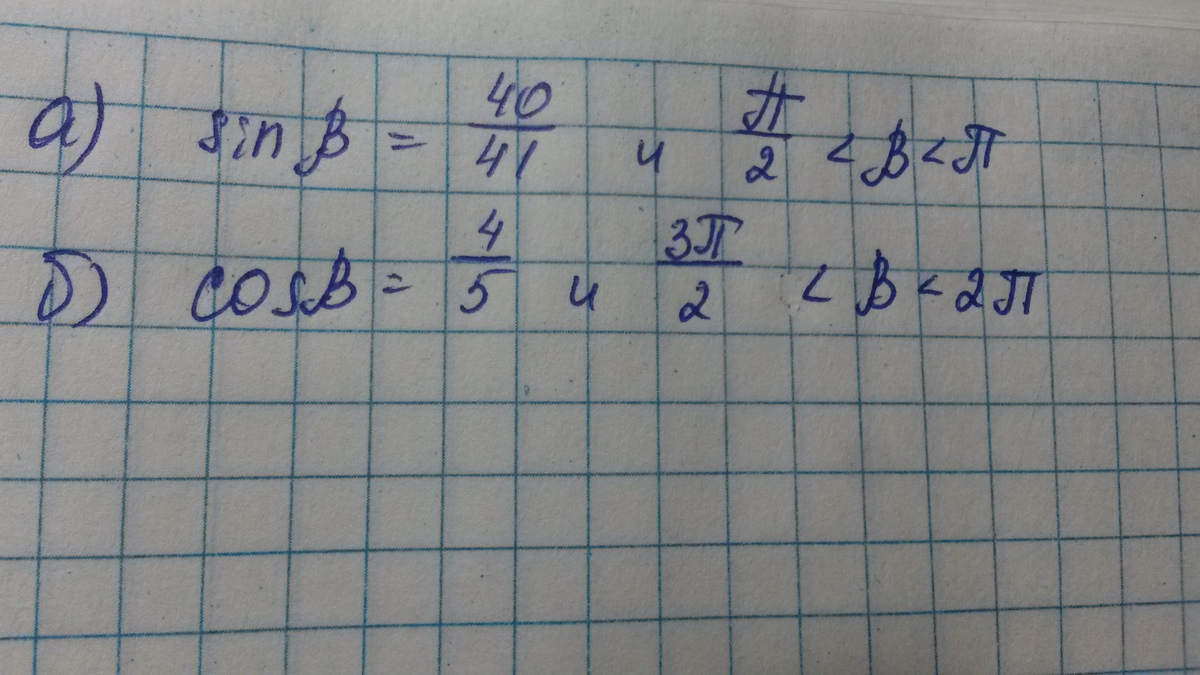 а) sin β = 40/41 и π/2 < β < π
б) cos β = 4/5 и 3π/2 < β < 2π